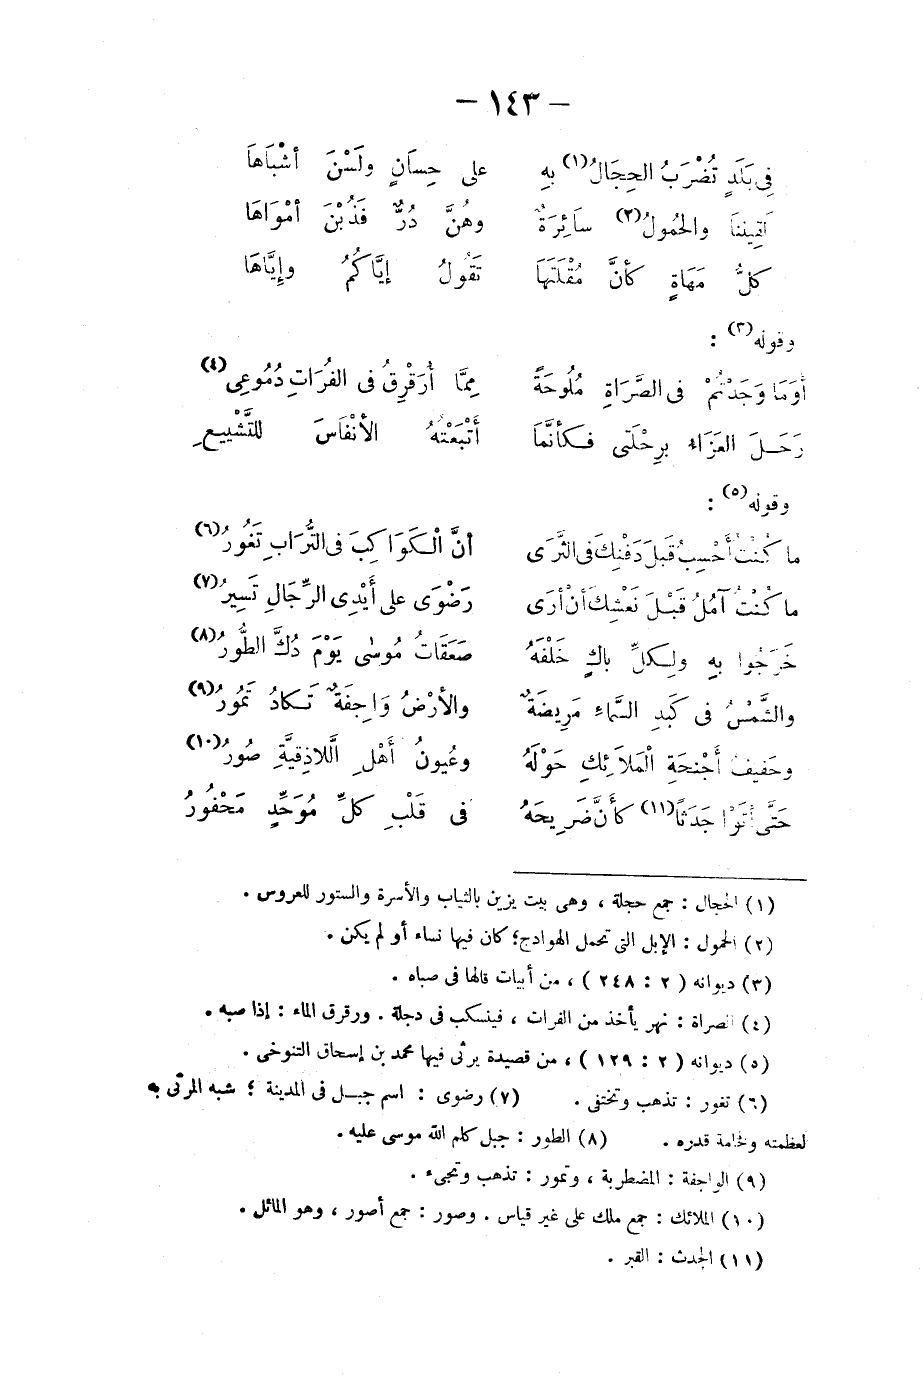 — ١٤٣ —
فِى بَلَدٍ تُضْرَبُ الحِجَالُ(١) بِهِ على حِسَانٍ ولَسْنَ أشْبَاهَا
لَقِينَنَا والحُمُولُ(٢) سَائِرَةٌ وهُنَّ دُرٌّ فَذُبْنَ أمْوَاهَا
كلُّ مَهَاةٍ كأنَّ مُقْلَتَهَا تَقُولُ إيَّاكُمُ وإيَّاهَا
وقوله(٣) :
أوَمَا وَجَدْتُمْ فى الصَّرَاةِ مُلُوحَةً مِمَّا أُرَقْرِقُ فى الفُرَاتِ دُمُوعِى(٤)
رَحَلَ العَزَاء برِحْلَتى فكأنَّمَا أَتْبَعْتُهُ الأنْفَاسَ للتَّشْيِيعِ
وقوله(٥) :
ما كُنْتُ أَحْسِبُ قَبلَ دَفْنِكَ فى الثَّرَى أنَّ الْكَوَاكِبَ فى التُّرَابِ تَغُورُ(٦)
ما كُنْتُ آمُلُ قَبْلَ نَعْشِكَ أنْ أرَى رَضْوَى على أَيْدِى الرِّجَالِ تَسِيرُ(٧)
خَرَجُوا بِهِ ولِكلِّ باكٍ خَلْفَهُ صَعَقَاتُ مُوسٰى يَوْمَ دُكَّ الطُّورُ(٨)
والشَّمْسُ فى كَبَدِ السَّماءِ مَرِيضَةٌ والأرْضُ وَاجِفَةٌ تَكادُ تَمُورُ(٩)
وحَفِيفُ أَجْنحَةِ الْمَلاَئِكِ حَوْلَهُ وعُيونُ أَهْلِ اللاَّذِقِيَّةِ صُورُ(١٠)
حَتَّى أتَوْا جَدَثاً(١١) كأنَّ ضَرِيحَهُ فى قَلْبِ كلِّ مُوَحِّدٍ مَحْفُورُ
(١) الحجال : جمع حجلة ، وهى بيت يزين بالثياب والأسرة والستور للعروس .
(٢) الحمول : الإبل التى تحمل الهوادج؛ كان فيها نساء أو لم يكن .
(٣) ديوانه ( ٢ : ٢٤٨ ) ، من أبيات قالها فى صباه .
(٤) الصراة : نهر يأخذ من الفرات ، فينسكب فى دجلة . ورقرق الماء : إذا صبه .
(٥) ديوانه ( ٢ : ١٢٩ ) ، من قصيدة يرثى فيها محمد بن إسحاق التنوخى .
(٦) تغور : تذهب وتختفى . (٧) رضوى : اسم جبل فى المدينة ؛ شبه المرثى به
لعظمته وفخامة قدره . (٨) الطور : جبل كلم الله موسى عليه .
(٩) الواجفة : المضطربة ، وتمور : تذهب وتجىء .
(١٠) الملائك : جمع ملك على غير قياس . وصور : جمع أصور ، وهو المائل .
(١١) الجدث : القبر .